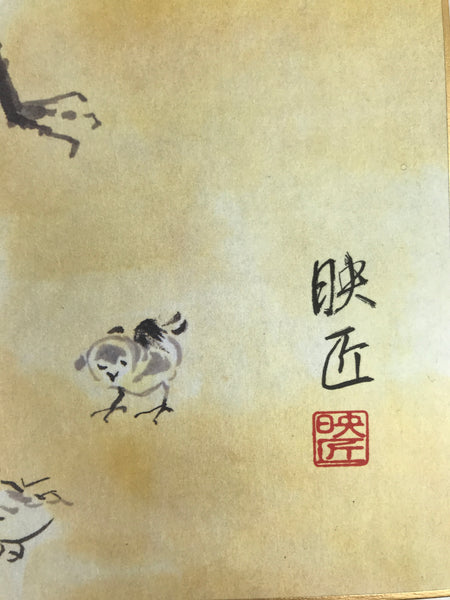 映
匠
映匠